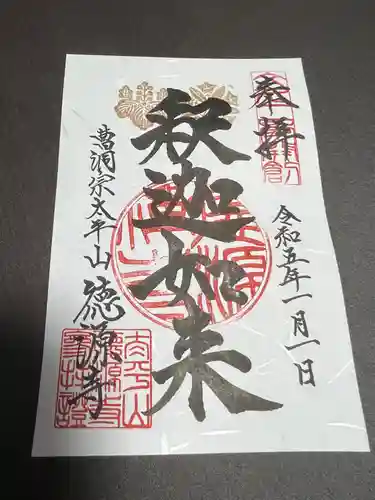 奉拝
令和五年一月一日
釈迦如来
曹洞宗太平山
徳源寺